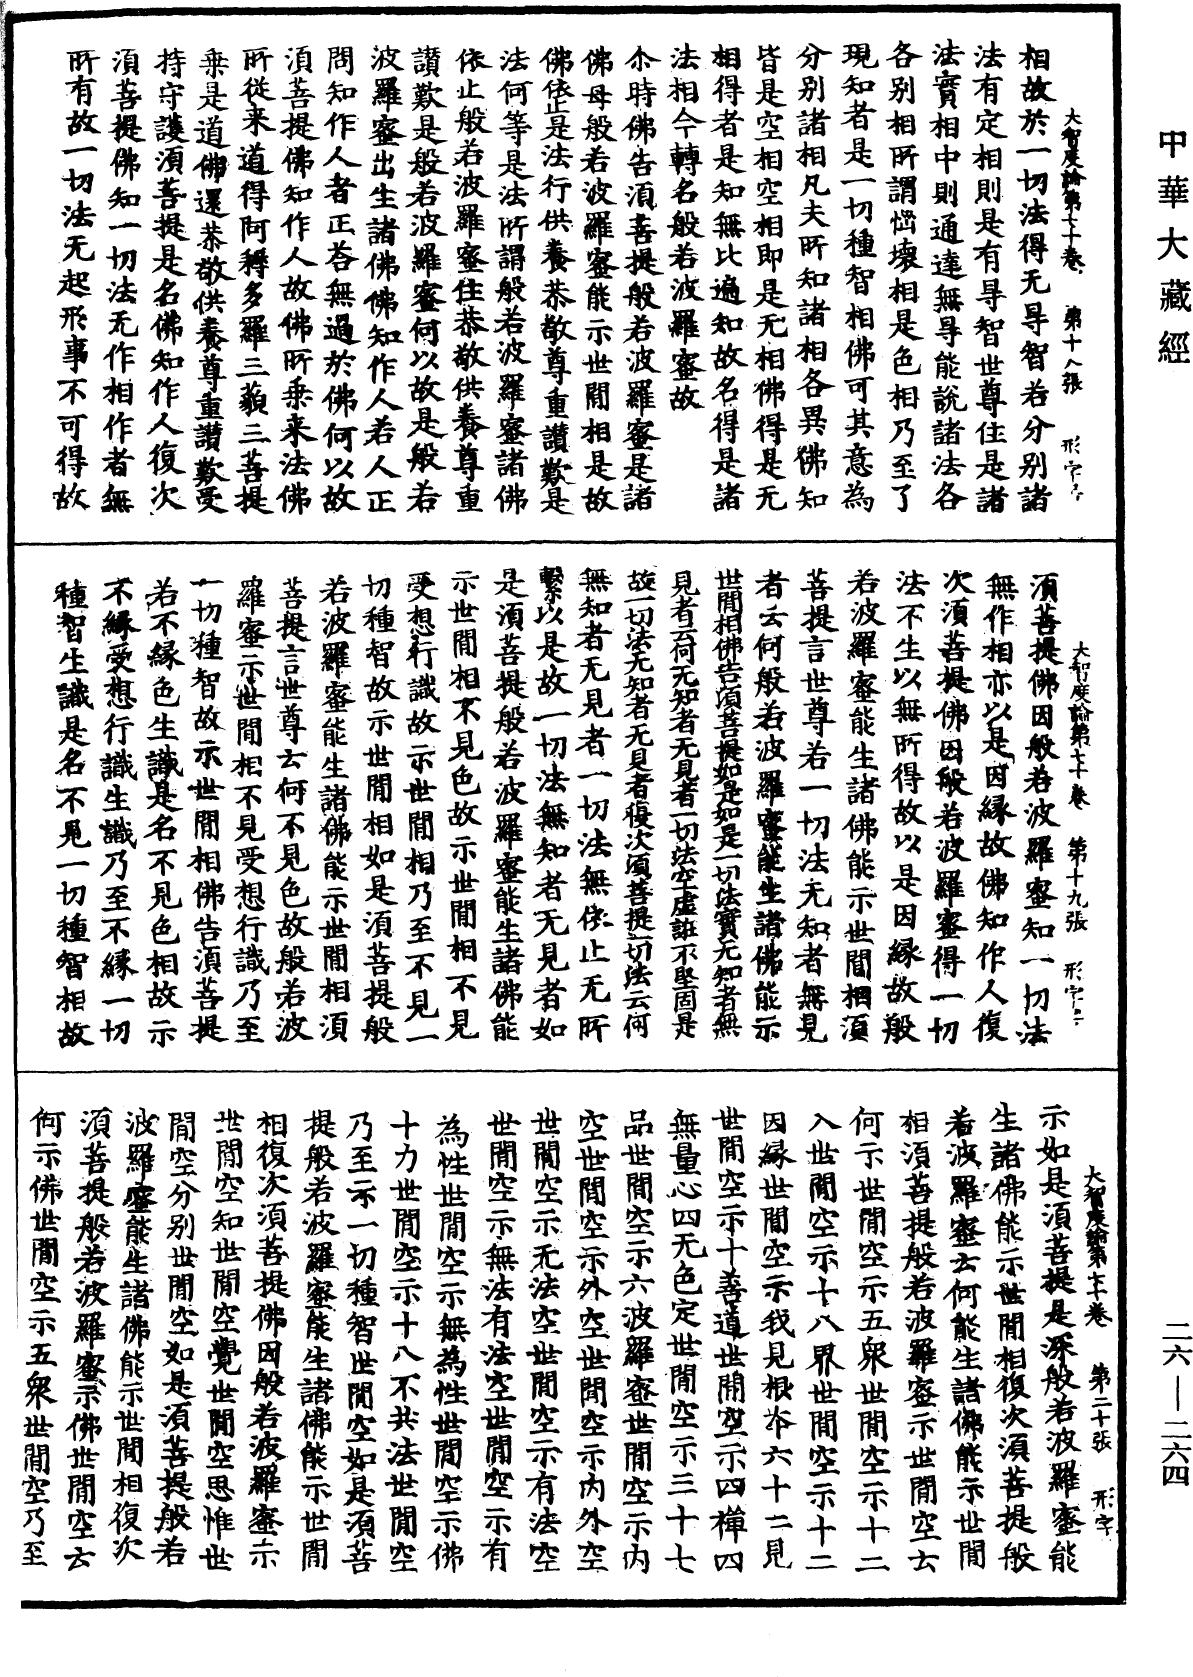 中華大藏經
二六—二六四
大智度論第七十卷 第十八張 形字号
相故於一切法得无㝵智若分別諸
法有定相則是有㝵智世尊住是諸
法實相中則通達無㝵能說諸法各
各別相所謂惱壞相是色相乃至了
現知者是一切種智相佛可其意為
分別諸相凡夫所知諸相各異佛知
皆是空相空相即是无相佛得是无
相得者是知無比遍知故名得是諸
法相今轉名般若波羅蜜故
尒時佛告須菩提般若波羅蜜是諸
佛母般若波羅蜜能示世閒相是故
佛依止是法行供養恭敬尊重讚歎是
法何等是法所謂般若波羅蜜諸佛
依止般若波羅蜜住恭敬供養尊重
讚歎是般若波羅蜜何以故是般若
波羅蜜出生諸佛佛知作人若人正
問知作人者正荅無過於佛何以故
須菩提佛知作人故佛所乘來法佛
所從來道得阿耨多羅三藐三菩提
乘是道佛還恭敬供養尊重讚歎受
持守護須菩提是名佛知作人復次
須菩提佛知一切法无作相作者無
所有故一切法无起形事不可得故
大智度論第七十卷 第十九張 形字号
須菩提佛因般若波羅蜜知一切法
無作相亦以是因緣故佛知作人復
次須菩提佛因般若波羅蜜得一切
法不生以無所得故以是因緣故般
若波羅蜜能生諸佛能示世閒相須
菩提言世尊若一切法无知者無見
者云何般若波羅蜜能生諸佛能示
世閒相佛告須菩提如是如是一切法實无知者無
見者云何无知者无見者一切法空虛誑不堅固是
故一切法无知者无見者復次須菩提一切法云何
無知者无見者一切法無依止无所
繫以是故一切法無知者无見者如
是須菩提般若波羅蜜能生諸佛能
示世閒相不見色故示世閒相不見
受想行識故示世閒相乃至不見一
切種智故示世閒相如是須菩提般
若波羅蜜能生諸佛能示世閒相須
菩提言世尊云何不見色故般若波
羅蜜示世閒相不見受想行識乃至
一切種智故示世閒相佛告須菩提
若不緣色生識是名不見色相故示
不緣受想行識生識乃至不緣一切
種智生識是名不見一切種智相故
大智度論第七十卷 第二十張 形字
示如是須菩提是深般若波羅蜜能
生諸佛能示世閒相復次須菩提般
若波羅蜜云何能生諸佛能示世閒
相須菩提般若波羅蜜示世閒空云
何示世閒空示五眾世閒空示十二
入世閒空示十八界世閒空示十二
因緣世閒空示我見根夲六十二見
世閒空示十善道世閒空示四禪四
無量心四无色定世閒空示三十七
品世閒空示六波羅蜜世閒空示內
空世閒空示外空世閒空示內外空
世閒空示无法空世閒空示有法空
世閒空示無法有法空世閒空示有
為性世閒空示無為性世閒空示佛
十力世閒空示十八不共法世閒空
乃至示一切種智世閒空如是須菩
提般若波羅蜜能生諸佛能示世閒
相復次須菩提佛因般若波羅蜜示
世閒空知世閒空覺世閒空思惟世
閒空分別世閒空如是須菩提般若
波羅蜜能生諸佛能示世閒相復次
須菩提般若波羅蜜示佛世閒空云
何示佛世閒空示五眾世閒空乃至